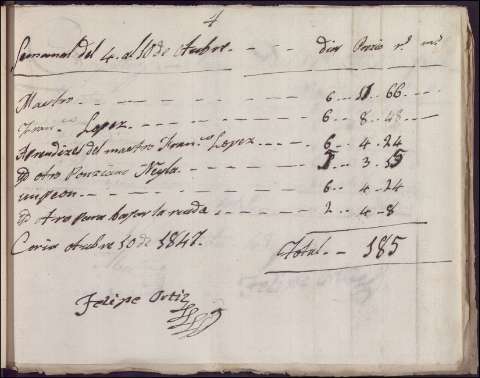 4
Semanal del 4. al 10 de otubre. - - - dias Precio r.s m.s
Maestro - - - - - - - - - 6 .. 11 .. 66 ..
Fran.co Lopez. - - - - - - - 6 .. 8 .. 48 ..
Aprendizes del maestro Fran.co Lopez .. - - 6 .. 4 .. 24
Yd otro Ponciano Neyla. - - - - 5 .. 3 .. 15
un peon - - - - - - - - 6 .. 4 .. 24
Yd otro para bajar la rueda - - - - 2 .. 4 - 8
Coria otubre 10 de 1847. Total - - 185
Felipe Ortiz